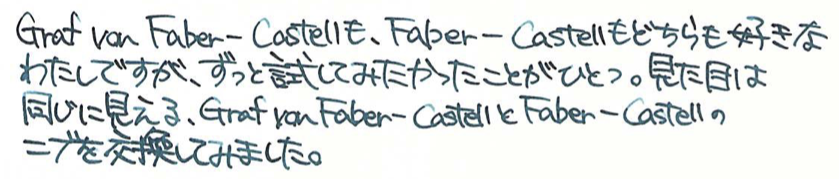 Graf von Faber-Castellも、Faber-Castellもどちらも好きな
わたしですが、ずっと試してみたかったことがひとつ。見た目は
同じに見える、Graf von Faber-CastellとFaber-Castellの
ニブを交換してみました。